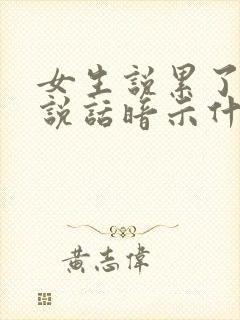 女生說累了
說話暗示什
黃志偉